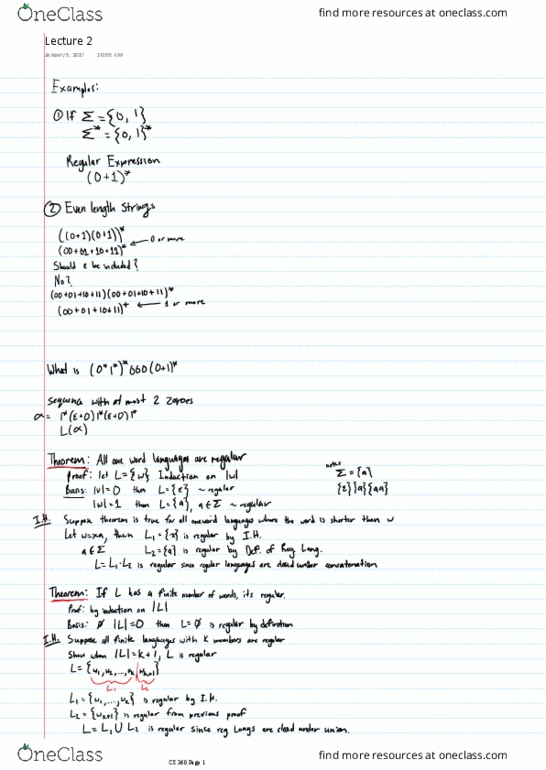 OneClass
find more resources at oneclass.com
Lecture 2
January 5, 2017 10:05 AM
Examples:
① If Σ = {0, 1}
Σ* = {0, 1}*
Regular Expression
(0+1)*
② Even length strings
((0+1)(0+1))*
(00+01+10+11)* ← 0 or more
Should ε be included?
No?
(00+01+10+11)(00+01+10+11)*
(00+01+10+11)⁺ ← 1 or more
What is (0*1*)*000(0+1)*
Sequence with at most 2 zeroes
α = 1*(ε+0)1*(ε+0)1*
L(α)
Theorem: All one word languages are regular
Proof: let L={w} Induction on |w|
notes
Σ={a}
{ε}{a}{aa}
Basis: |w|=0 then L={ε} ~ regular
|w|=1 then L={a}, a∈Σ ~ regular
I.H. Suppose theorem is true for all oneword languages where the word is shorter than w
Let w=xa, then L₁={x} is regular by I.H.
a∈Σ L₂={a} is regular by Def. of Reg Lang.
L=L₁·L₂ is regular since regular languages are closed under concatenation
Theorem: If L has a finite number of words, its regular.
Proof: by induction on |L|
Basis: |L|=0 then L=∅ is regular by definition
I.H. Suppose all finite languages with K members are regular
Show when |L|=k+1, L is regular
L={w₁,w₂,...,wₖ,wₖ₊₁}
L₁ L₂
L₁={w₁,...,wₖ} is regular by I.H.
L₂={wₖ₊₁} is regular from previous proof
L=L₁∪L₂ is regular since reg langs are closed under union.
CS 360 Page 1
OneClass
find more resources at oneclass.com